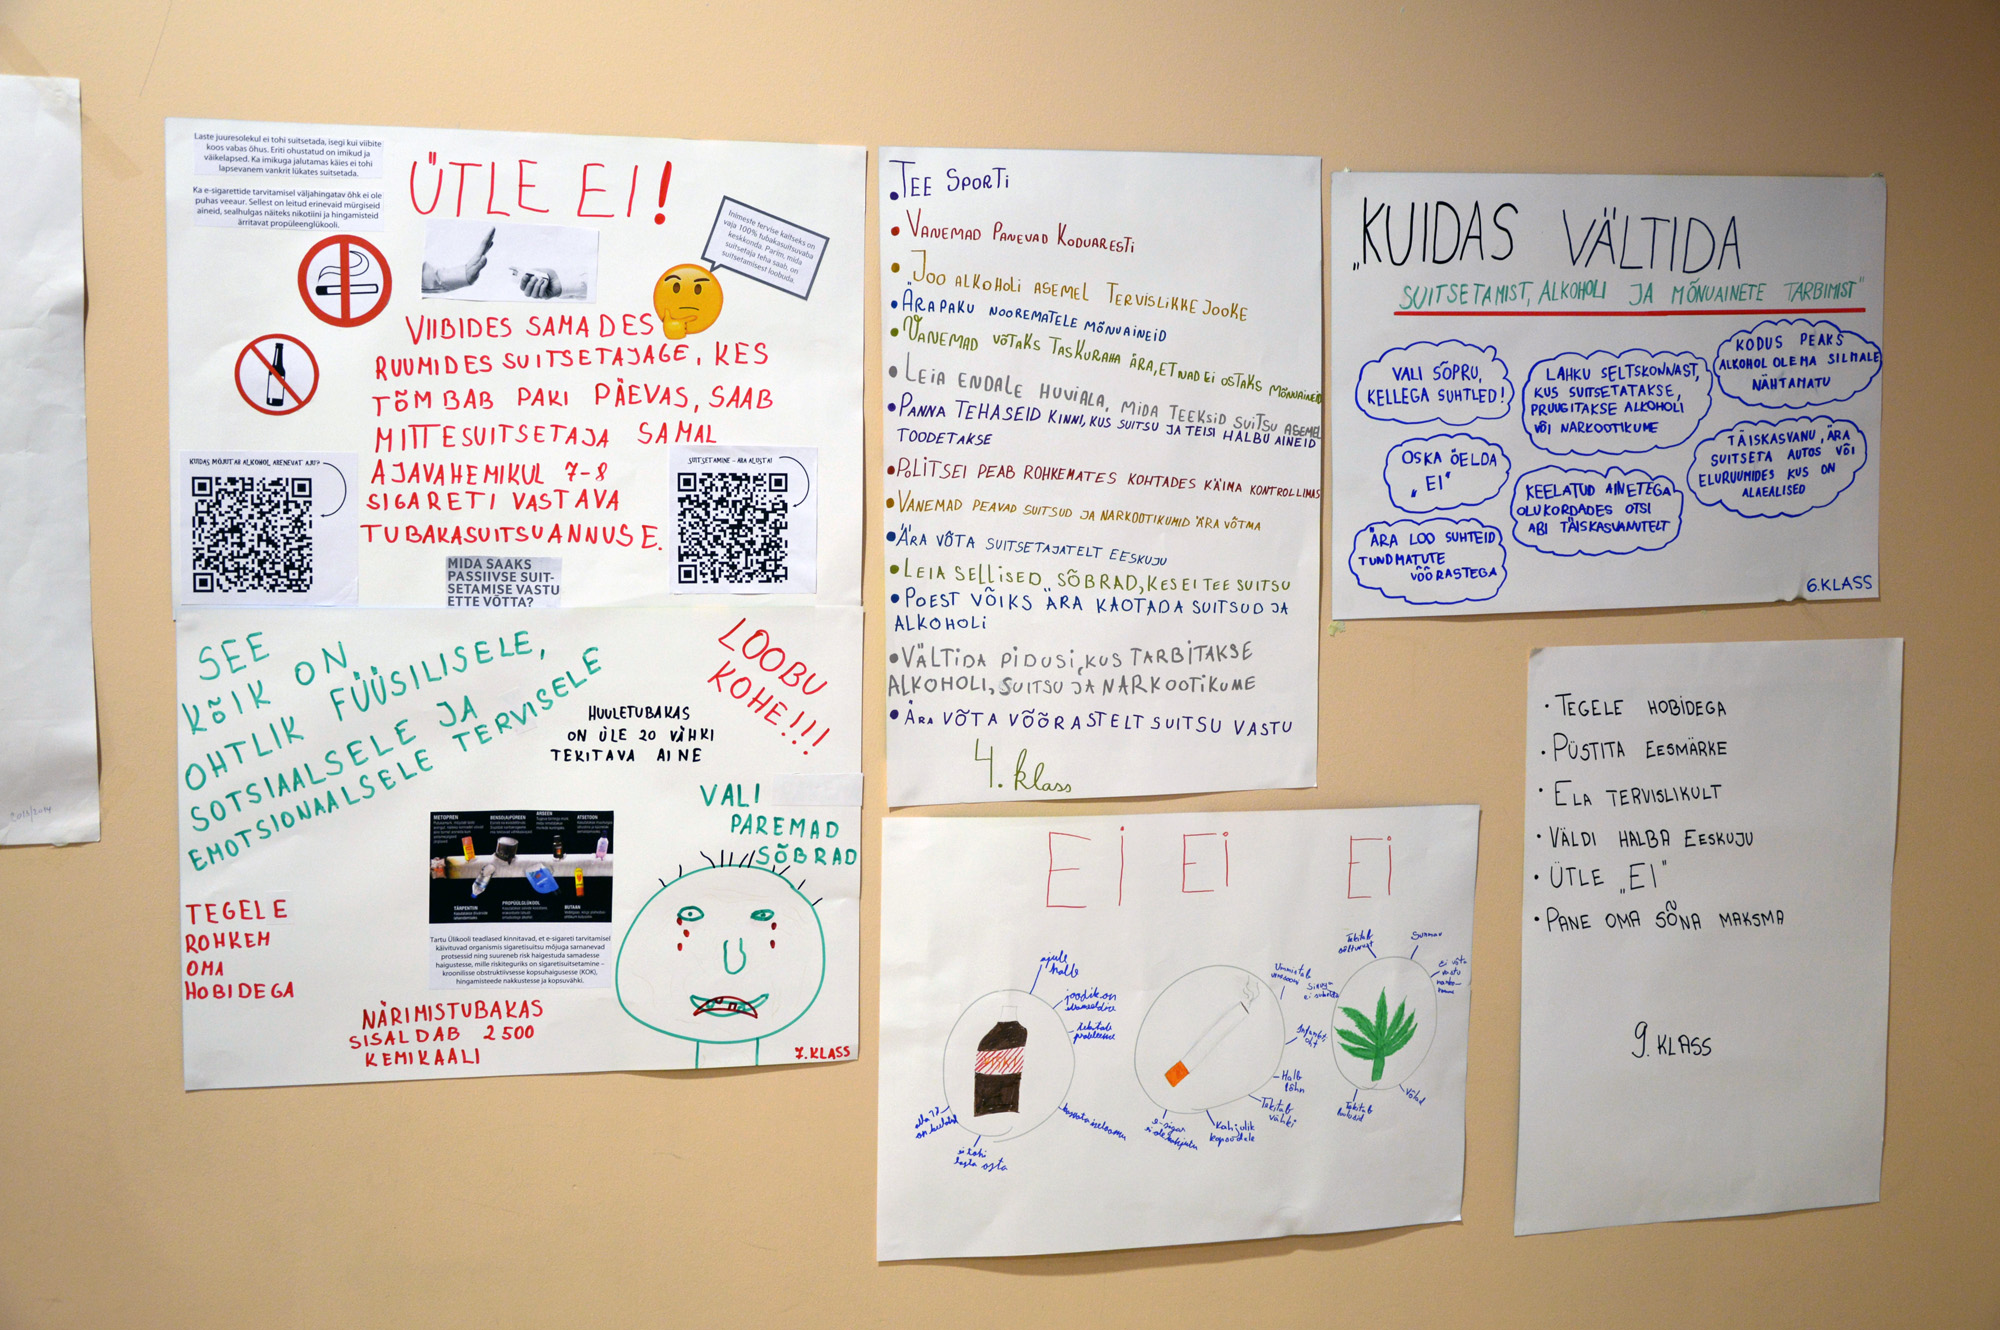 Laste juuresolekul ei tohi suitsetada, isegi kui viibite
koos vabas õhus. Eriti ohustatud on imikud ja
väikelapsed. Ka imikuga jalutamas käies ei tohi
lapsevanem vankrit lükates suitsetada.
Ka e-sigarettide tarvitamisel väljahingatav õhk ei ole
puhas veeaur. Sellest on leitud erinevaid mürgiseid
aineid, sealhulgas näiteks nikotiini ja hingamisteid
ärritavat propüleenglükooli.
ÜTLE EI!
Inimeste tervise kaitseks on
vaja 100% tubakasuitsuvaba
keskkonda. Parim, mida
suitsetaja teha saab, on
suitsetamisest loobuda.
VIIBIDES SAMADES
RUUMIDES SUITSETAJAGE, KES
TÕMBAB PAKI PÄEVAS, SAAB
MITTESUITSETAJA SAMAL
AJAVAHEMIKUL 7-8
SIGARETI VASTAVA
TUBAKASUITSUANNUSE.
KUIDAS MÕJUTAB ALKOHOL ARENEVAT AJU?
SUITSETAMINE - ÄRA ALUSTA!
MIDA SAAKS
PASSIIVSE SUIT-
SETAMISE VASTU
ETTE VÕTTA?
SEE
KÕIK ON
OHTLIK FÜÜSILISELE,
SOTSIAALSELE JA
EMOTSIONAALSELE TERVISELE
LOOBU
KOHE!!!
HUULETUBAKAS
ON ÜLE 20 VÄHKI
TEKITAVA AINE
VALI
PAREMAD
SÕBRAD
METOPREN
BENSOLAPÜREEN
ARSEEN
ATSETOON
TÄRPENTIIN
PROPÜÜLGLÜKOOL
BUTAAN
Tartu Ülikooli teadlased kinnitavad, et e-sigareti tarvitamisel
käivituvad organismis sigaretisuitsu mõjuga samanevad
protsessid ning suureneb risk haigestuda samadesse
haigustesse, mille riskiteguriks on sigaretisuitsetamine –
kroonilisse obstruktiivsesse kopsuhaigusesse (KOK),
hingamisteede nakkustesse ja kopsuvähki.
TEGELE
ROHKEM
OMA
HOBIDEGA
NÄRIMISTUBAKAS
SISALDAB 2500
KEMIKAALI
7. KLASS
• TEE SPORTI
• VANEMAD PANEVAD KODUARESTI
• JOO ALKOHOLI ASEMEL TERVISLIKKE JOOKE
• ÄRA PAKU NOOREMATELE MÕNUAINEID
• VANEMAD VÕTAKS TASKURAHA ÄRA, ET NAD EI OSTAKS MÕNUAINEID
• LEIA ENDALE HUVIALA, MIDA TEEKSID SUITSU ASEMEL
• PANNA TEHASEID KINNI, KUS SUITSU JA TEISI HALBU AINEID
TOODETAKSE
• POLITSEI PEAB ROHKEMATES KOHTADES KÄIMA KONTROLLIMAS
• VANEMAD PEAVAD SUITSUD JA NARKOOTIKUMID ÄRA VÕTMA
• ÄRA VÕTA SUITSETAJATELT EESKUJU
• LEIA SELLISED SÕBRAD, KES EI TEE SUITSU
• POEST VÕIKS ÄRA KAOTADA SUITSUD JA
ALKOHOLI
• VÄLTIDA PIDUSI, KUS TARBITAKSE
ALKOHOLI, SUITSU JA NARKOOTIKUME
• ÄRA VÕTA VÕÕRASTELT SUITSU VASTU
4. klass
„KUIDAS VÄLTIDA
SUITSETAMIST, ALKOHOLI JA MÕNUAINETE TARBIMIST"
VALI SÕPRU,
KELLEGA SUHTLED!
LAHKU SELTSKONNAST,
KUS SUITSETATAKSE,
PRUUGITAKSE ALKOHOLI
VÕI NARKOOTIKUME
KODUS PEAKS
ALKOHOL OLEMA SILMALE
NÄHTAMATU
OSKA ÖELDA
„EI"
KEELATUD AINETEGA
OLUKORDADES OTSI
ABI TÄISKASVANUTELT
TÄISKASVANU, ÄRA
SUITSETA AUTOS VÕI
ELURUUMIDES KUS ON
ALAEALISED
ÄRA LOO SUHTEID
TUNDMATUTE
VÕÕRASTEGA
6. KLASS
EI EI EI
ajule
halb
joodik on
tekitab
probleeme
ei tohi
osta
Halb
lõhn
Tekitab
vähki
Kahjulik
kopsudele
e-sigar
Tekitab
Võlad
• TEGELE HOBIDEGA
• PÜSTITA EESMÄRKE
• ELA TERVISLIKULT
• VÄLDI HALBA EESKUJU
• ÜTLE „EI"
• PANE OMA SÕNA MAKSMA
9. KLASS
2013/2014